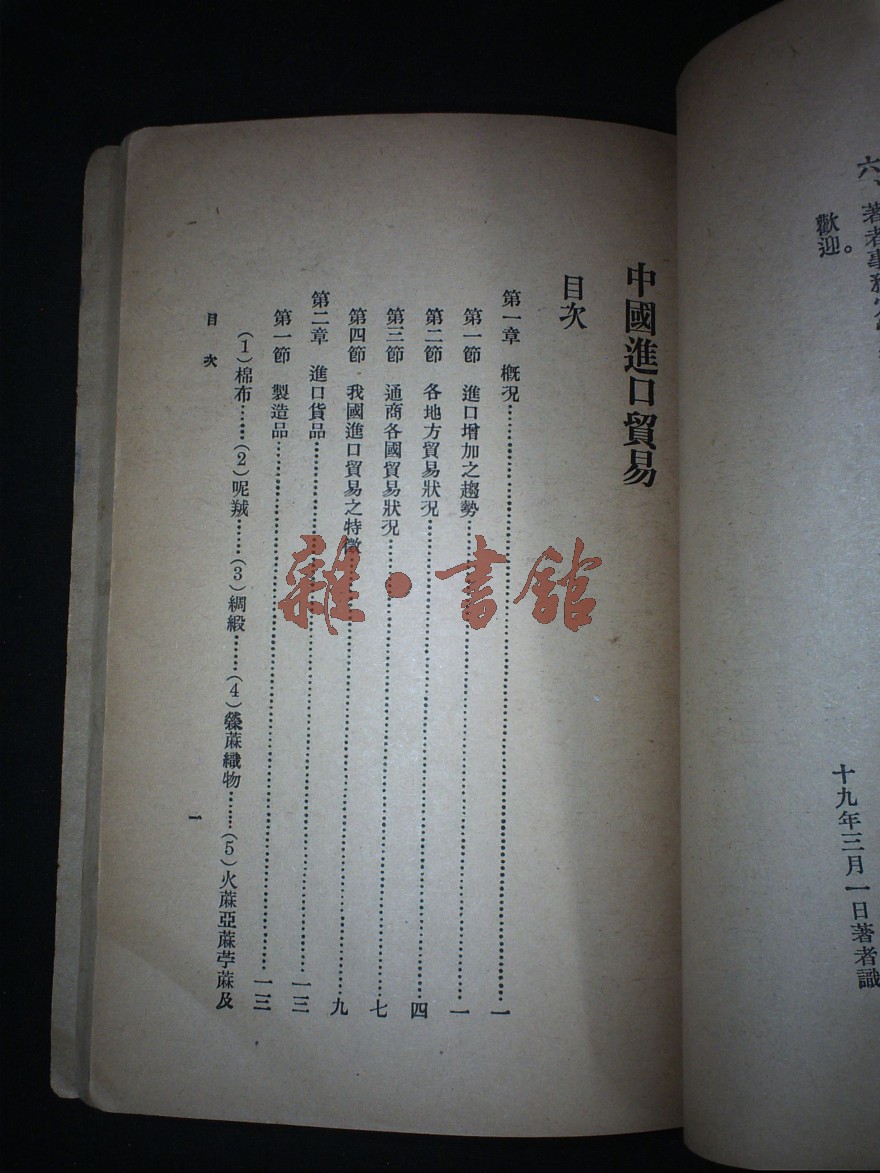 六、著者事務
歡迎。
十九年三月一日著者識
中國進口貿易
目次
第一章 概况……一
第一節 進口增加之趨勢……一
第二節 各地方貿易狀况……四
第三節 通商各國貿易狀况……七
第四節 我國進口貿易之特徵……九
第二章 進口貨品……一三
第一節 製造品……一三
(1)棉布……(2)呢羢……(3)綢緞……(4)蔴織物……(5)火蔴亞蔴苧蔴及
目次
一
雜·書館